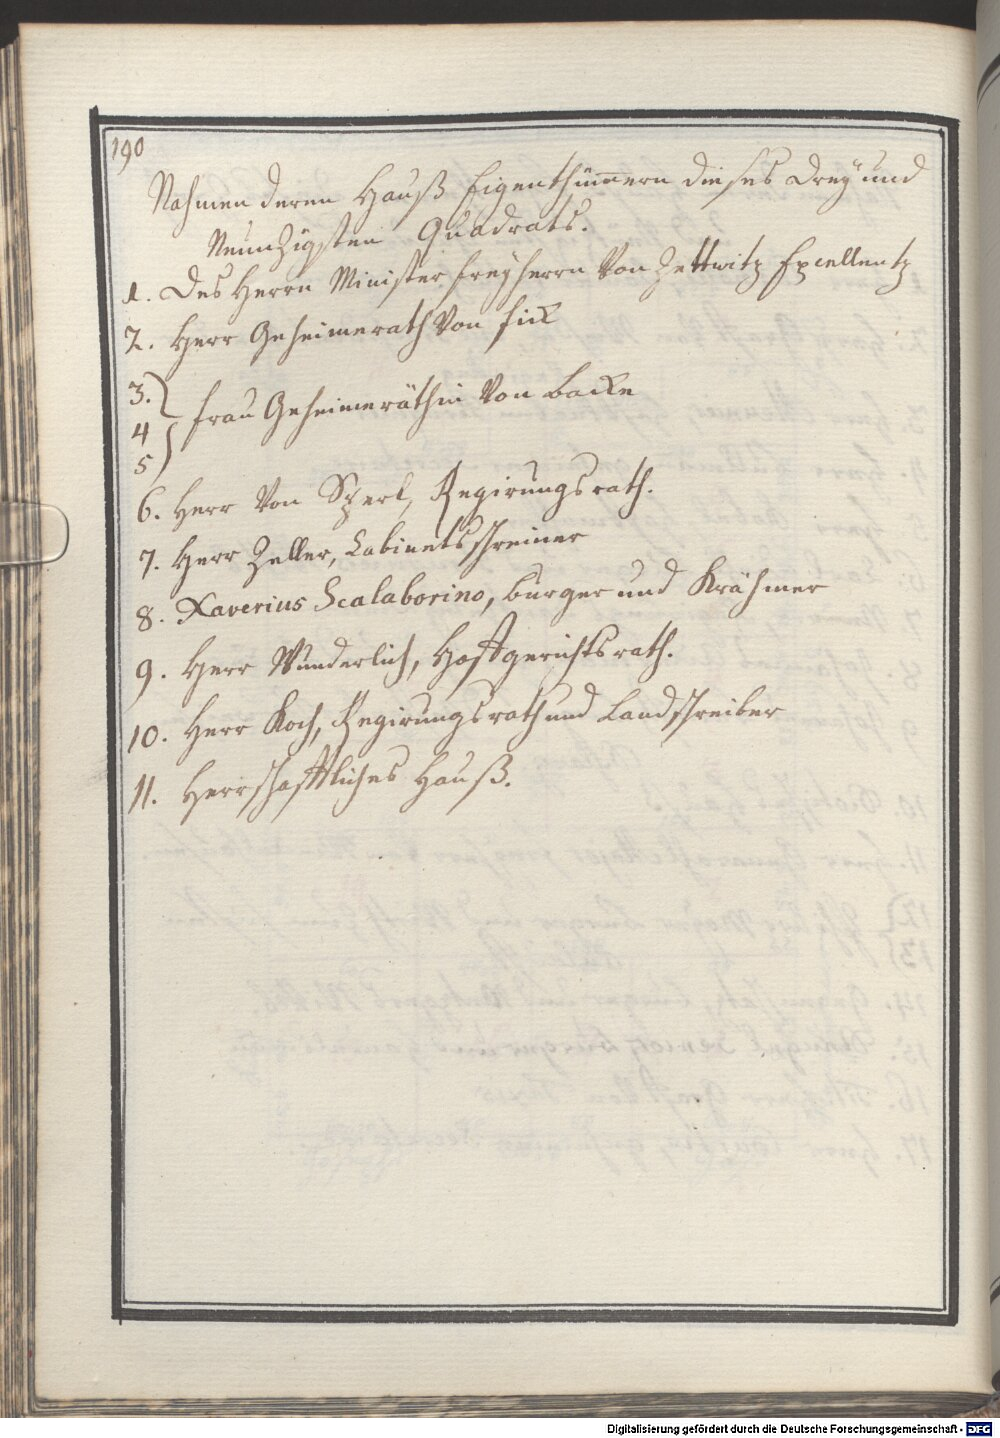 190
Nahmen deren Hauß Eigenthümmern dieses Dreÿ und
Neunzigsten Quadrats.
1. Des Herrn Minister freÿherrn Von Zettwitz Excellentz
2. Herr Geheimerath Von fick
3.
4 frau Geheimeräthin Von Backe
5
6. Herr Von Sperl, Regirungsrath.
7. Herr Zeller, Cabinetsschreiner
8. Xaverius Scalaborino, burger und Krähmer
9. Herr Wunderlich, Hoffgerichtsrath.
10. Herr Koch, Regirungsrath und Landschreiber
11. Herrschafftliches Hauß.
Digitalisierung gefördert durch die Deutsche Forschungsgemeinschaft - DFG